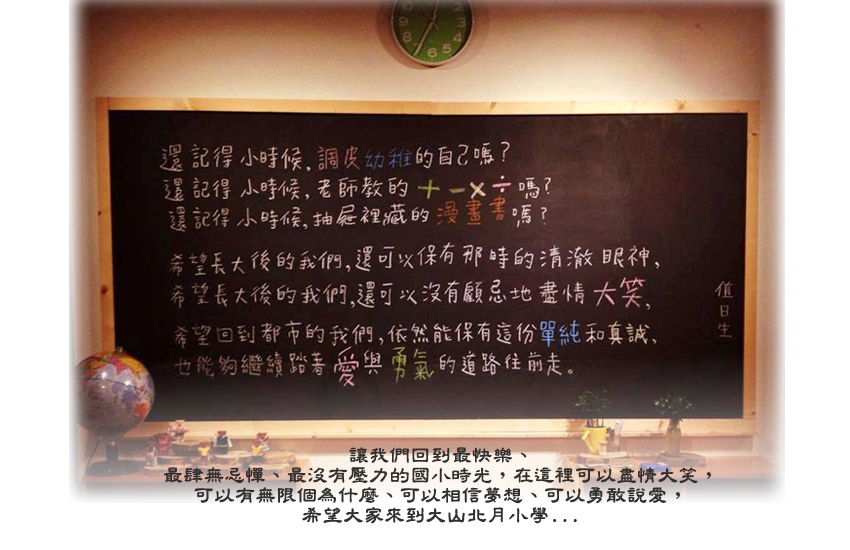 還記得小時候,調皮幼稚的自己嗎?
還記得小時候,老師教的+-×÷嗎?
還記得小時候,抽屜裡藏的漫畫書嗎?
希望長大後的我們,還可以保有那時的清澈眼神,
希望長大後的我們,還可以沒有顧忌地盡情大笑,
希望回到都市的我們,依然能保有這份單純和真誠,
也能夠繼續踏著愛與勇氣的道路往前走。
值日生
讓我們回到最快樂、
最肆無忌憚、最沒有壓力的國小時光,在這裡可以盡情大笑,
可以有無限個為什麼、可以相信夢想、可以勇敢說愛,
希望大家來到大山北月小學...